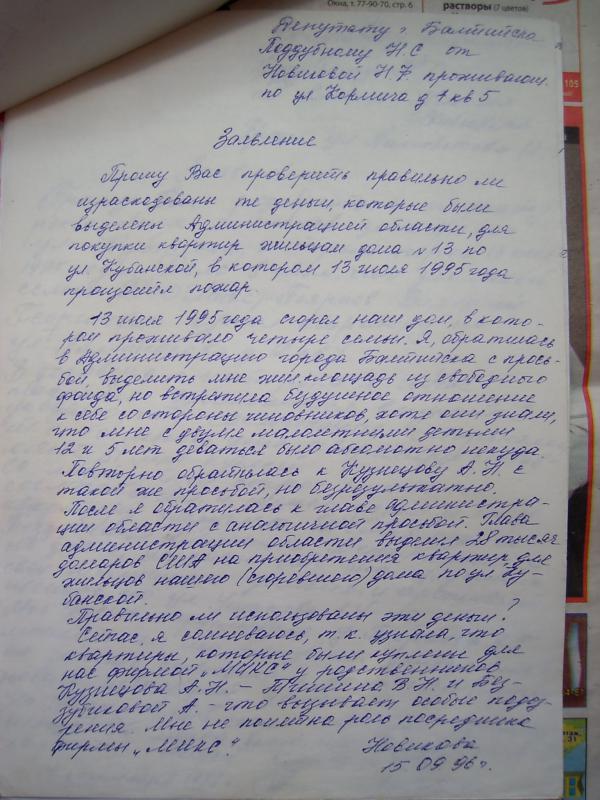 Окид, т. 77-90-70, стр. 6
растворы (7 цветов)
105
Депутату г. Балтийска
Поддубному Н С от
Новиковой Н проживающ.
по ул д 1 кв 5
Заявление
Прошу Вас проверить правильно ли
израсходованы те деньги, которые были
выделены Администрацией области, для
покупки квартир жильцам дома N 13 по
ул. Кубанской, в котором 13 июля 1995 года
произошёл пожар.
13 июля 1995 года сгорел наш дом, в кото-
ром проживало четыре семьи. Я, обратилась
в Администрацию города Балтийска с прось-
бой, выделить мне жил.площадь из свободного
фонда, но встретила бездушное отношение
к себе со стороны чиновников, хотя они знали,
что мне с двумя малолетними детьми
12 и 5 лет деваться было абсолютно некуда.
Повторно обратилась к Кузнецову А.Н. с
такой же просьбой, но безрезультатно.
После я обратилась к главе администра-
ции области с аналогичной просьбой. Глава
администрации области выделил 28 тысяч
долларов США на приобретения квартир для
жильцов нашего (сгоревшего) дома по ул Ку-
банской.
Правильно ли использованы эти деньги?
Сейчас, я сомневаюсь, т.к. узнала, что
квартиры, которые были куплены для
нас фирмой „МИКС" у родственников
Кузнецова А.Н. – В.Н. и Без-
зубиковой А. – что вызывает особые подоз-
рения. Мне не понятна роль посредника
фирмы „МИКС".
Новикова
15 09 96 г.